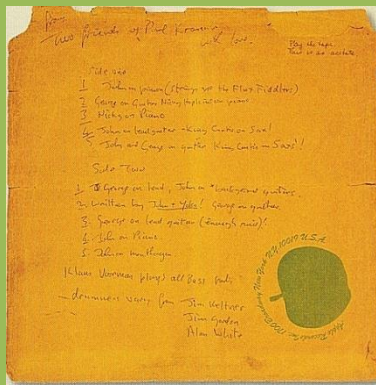 for
Two friends of Phil
with love.
Play the tape.
This is an acetate
Side one
1 John on piano (strings are the Flux Fiddlers)
2 George on Guitar Nicky Hopkins on piano
3 Nicky on Piano
4 John on lead guitar - King Curtis on Sax!
5 John and George on guitar King Curtis on Sax!!
Side Two
1. George on lead, John on guitar
2. written by John + Yoko! George on guitar
3. George on lead guitar (enough said)!
4. John on Piano
5. John on mouthorgan
Klaus Voorman plays all Bass
drummers vary from Jim Keltner
Jim Gordon
Alan White
Apple Records Inc. 1700 Broadway New York N.Y. 10019 U.S.A.